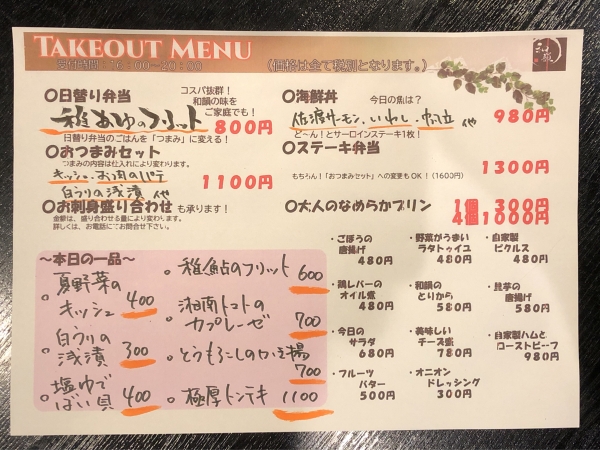 TAKEOUT MENU
受付時間:16:00〜20:00
(価格は全て税別となります。)
和韻
○日替り弁当
コスパ抜群!
和韻の味を
ご家庭でも!
稚あゆのフリット 800円
日替り弁当のごはんを「つまみ」に変える!
○おつまみセット
つまみの内容は仕入れにより変わります。
キッシュ・お肉のパテ
白うりの浅漬 etc 1100円
○お刺身盛り合わせ も承ります!
金額は、盛り合わせる量により変わります。
詳しくは、お電話にてお問合せ下さい。
○海鮮丼 今日の魚は?
佐渡サーモン、いわし、帆立 etc 980円
ど〜ん!とサーロインステーキ1枚!
○ステーキ弁当
1300円
もちろん!「おつまみセット」への変更もOK!(1600円)
○大人のなめらかプリン 1個 300円
4個1000円
〜本日の一品〜
○夏野菜の
キッシュ 400
○白うりの
浅漬 300
○塩ゆで
ばい貝 400
○稚鮎のフリット 600
○湘南トマトの
カプレーゼ 700
○とうもろこしのかき揚
700
○極厚トンテキ 1100
・ごぼうの
唐揚げ
480円
・野菜がうまい
ラタトゥイユ
480円
・自家製
ピクルス
480円
・鶏レバーの
オイル煮
480円
・和韻の
とりから
580円
・里芋の
唐揚げ
580円
・今日の
サラダ
680円
・美味しい
チーズ盛
780円
・自家製ハムと
ローストビーフ
980円
・フルーツ
バター
500円
・オニオン
ドレッシング
300円